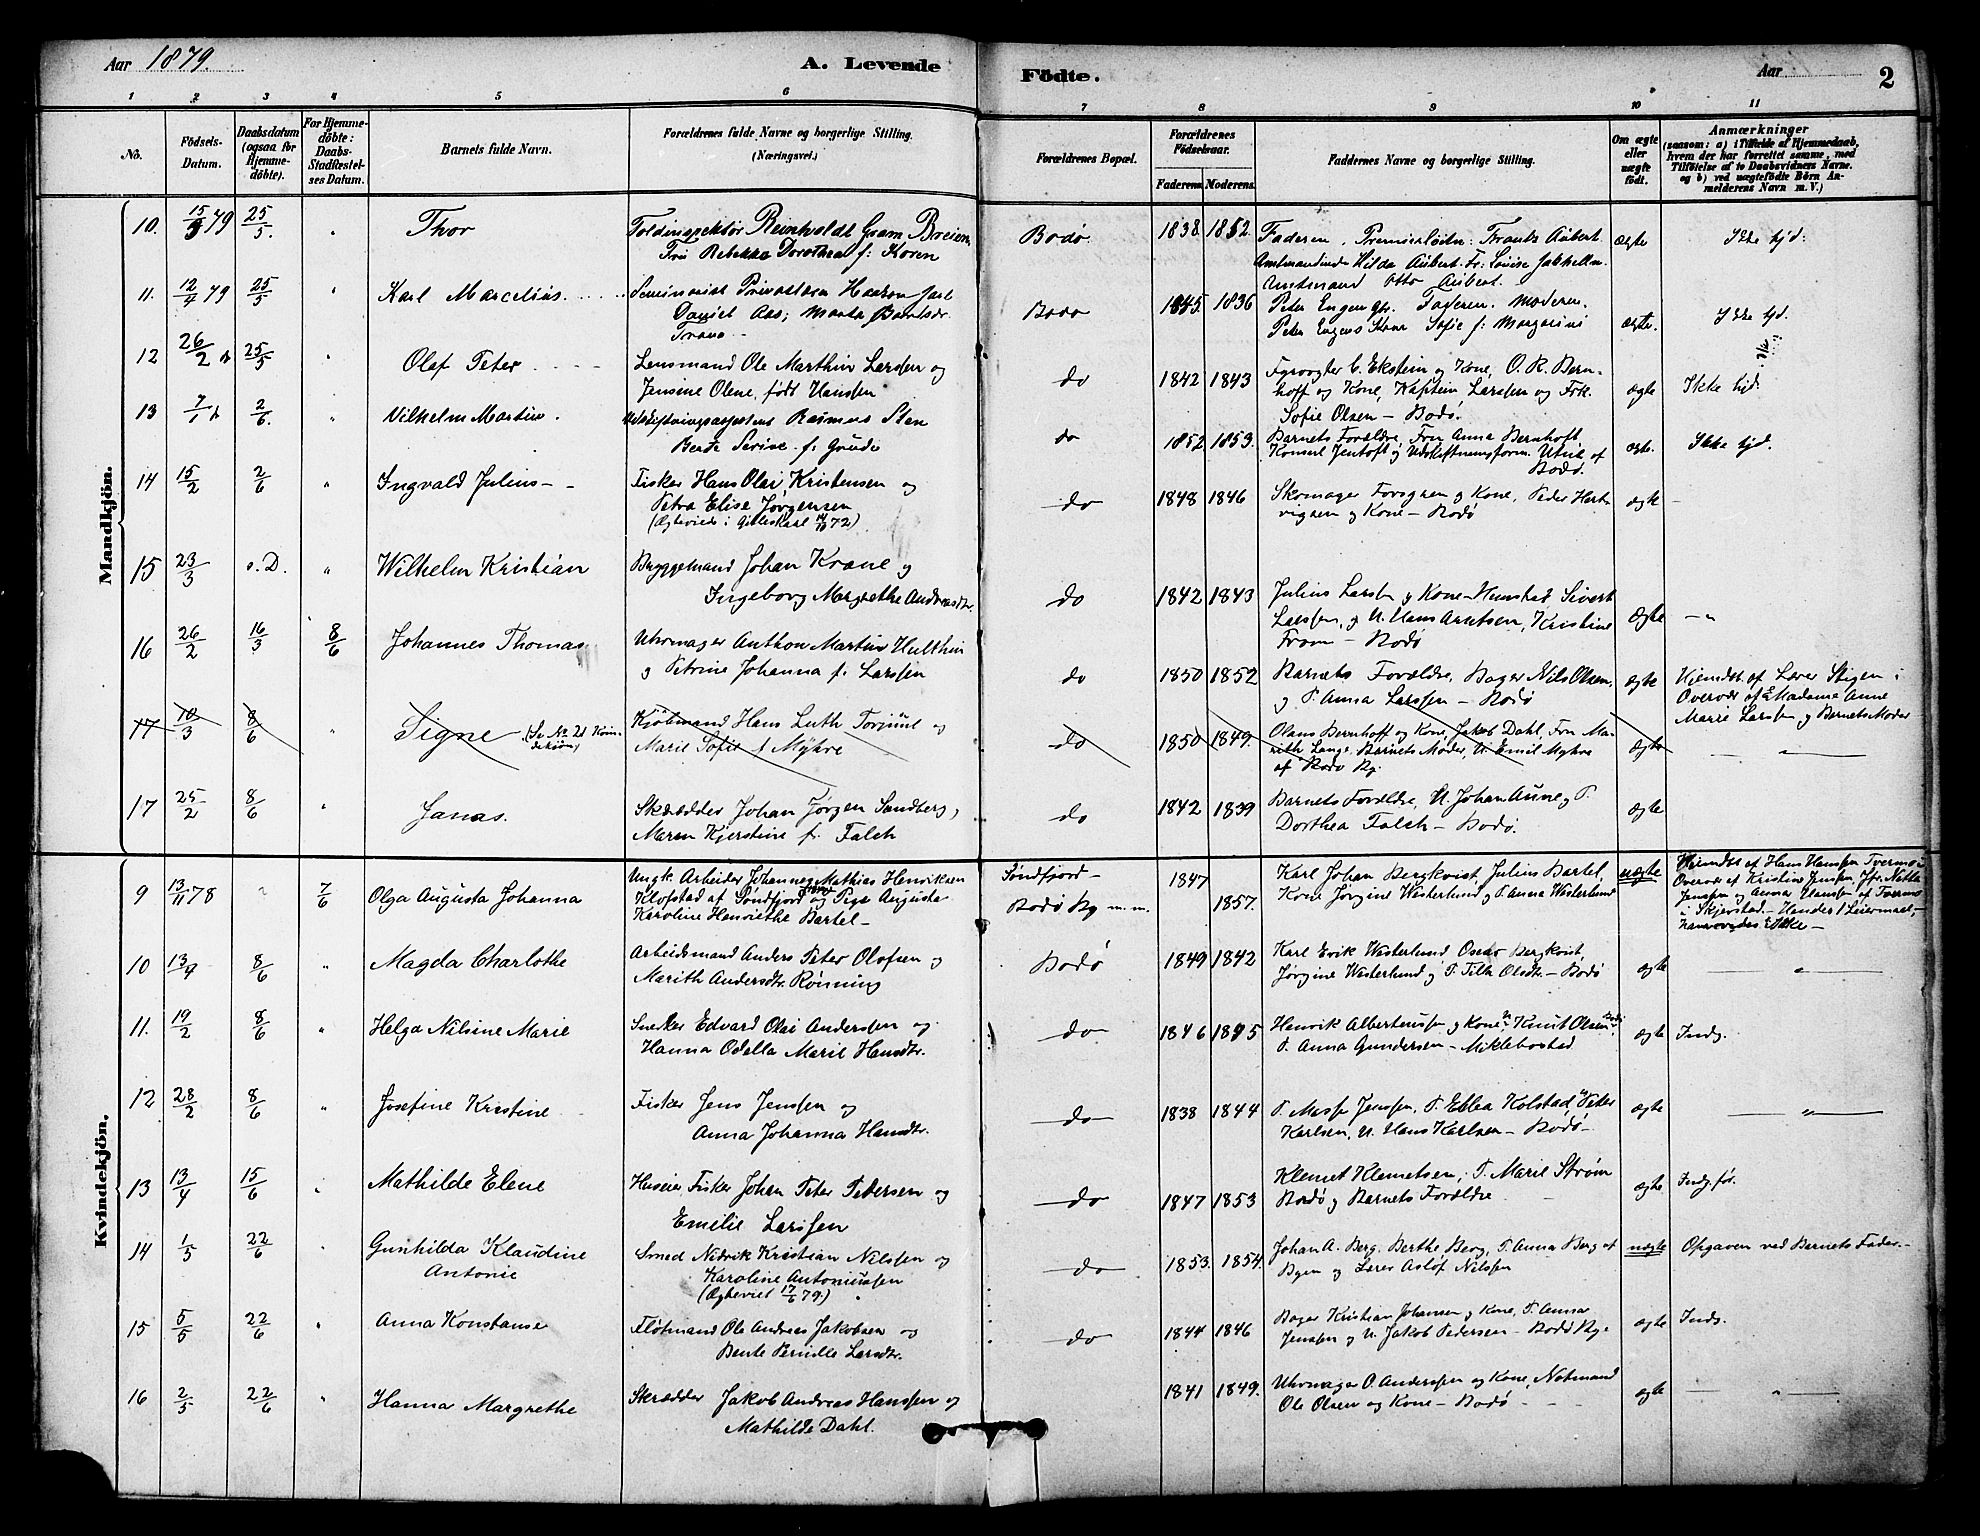 Aar 1879.
A. Levende
Födte.
Aar
2
1 2 3 4 5 6 7 8 9 10 11
No.
Födsels-Datum.
Daabsdatum (ogsaa for Hjemmedöbte).
For Hjemmedöbte: Daabs-Stadfæstelses Datum.
Barnets fulde Navn.
Forældrenes fulde Navne og borgerlige Stilling.
(Næringsvei.)
Forældrenes Bopæl.
Forældrenes Födselsaar.
Faderens. Moderens.
Faddernes Navne og borgerlige Stilling.
Om ægte eller uægte födt.
Anmærkninger
(saasom: a) i Tilfælde af Hjemmedaab, hvem der har forrettet samme, med Tilföielse af to Daabsvidners Navne, og b) ved uægtefödte Börn Anmelderens Navn m. V.)
Mandkjön.
10. 15/3 79 25/5. " Thor Toldinspektør Reinholdt Gram Breien Bodø. 1838 1852. Faderen, Premierløitn: Frantz Aubert. ægte Ikke hjd.
Fru Rebekka Dorothea f: Koren Amtmandinde Hilda Aubert. Fr: Lovise Jakhelln.
Amtmand Otto Aubert.
11. 12/4 79 25/5 " Karl Marcelius. Seminarist Haakon Jarl Bodø 1845. 1836 Peter Engen Faderen. Moderen. ægte. Ikke hjd.
Daniel Aas; Marta Peter Engens Kone Sofie f: Margarini
12 26/2 25/5 " Olaf Peter Lensmand Ole Marthin Larssen og do 1842 1843 C. Ekstein og Kone, O. R. Bern- ægte Ikke hjd.
Jensine Olene, født Hanssen hoff og Kone, Kaptein Larssen og Frk.
Sofie Olsen – Bodø.
13 7/1 2/6. " Vilhelm Martin. Rasmus Sten do 1852 1853. Barnets Forældre, Fru Anna Bernhoft ægte. Ikke hjd.
Berte Serine f: Konsul Jentoft og Udskiftningsform. Utvik af
Bodø.
14 15/2 2/6 " Ingvald Julius – Fisker Hans Olai Kristensen og do 1848 1846 Skomager Forsgren og Kone, Peder Hart- ægte –
Petra Elise Jørgensen vigsen og Kone – Bodø
(Ægteviede i Gilleskaal 14/10 72)
15 23/3 s. D. " Wilhelm Kristian Byggemand Johan Krane og do 1842 1843 Julius Larsen og Kone – Hunstad Sivert ægte –"
Ingeborg Margrethe Andreasdtr. Larssen, og U. Hans Arntsen, Kristine
Fram – Bodø
16 26/2 16/3 8/6 Johannes Thomas Uhrmager Anthon Martin Hulthin do 1850 1852 Barnets Forældre, Bager Nils Olsen, ægte Hjemdbt. af Lærer Stigen i
og Petrine Johanna f. Larssen og P. Anna Larssen – Bodø Overvær af Madame Anne
Marie Larssen og Barnets Moder
17 10/3 8/6 " Signe (Se No 21 Kvindekjøn) Kjøbmand Hans Luth Torjuul og do 1850 1849. Olaus Bernhoff og Kone, Jakob Dahl, Fru Ma- ægte – " –
Marie Sofie f Myhre rith Lange, Barnets Moder, U. Emil Myhre
af Bodø By.
17 25/2 8/6 " Janas. Skrædder Johan Jørgen Sandberg, do 1842 1839 Barnets Forældre, U. Johan Aune, og P. ægte
Maren Kjerstine f. Falch Dorthea Falch – Bodø.
Kvindekjön.
9 13/11 78 " 7/6 Olga Augusta Johanna Ungk. Arbeider Johannes Mathias Henriksen Søndfjord – 1847 Karl Johan Bergkvist, Julius Bartel, uægte Hjemdbt af Hans Hanssen Tvermo i
Klofstad af Søndfjord og Pige Augusta Bodø By m.m. 1857. Kone Jørgine Westerlund og P. Anna Westerlund Overvær af Kristine Jenssen,
Karoline Henriethe Bartel – Jenssen og Anna Hanssen af Tvermo
i Skjerstad. – Hendes 1 Leiermaal, –
10 13/4 8/6 " Magda Charlothe Arbeidsmand Anders Peter Olofsen og Bodø 1849 1842 Karl Erik Westerlund, Oscar Bergkvist, ægte – " –
Marith Andersdtr. Rønning Jørgine Westerlund og P. Tilla Olsdtr. – Bodø
11. 19/2 8/6 " Helga Nilsine Marie Snedker Edvard Olai Anderssen og do 1846 1845 Henrik Albertussen og Kone U. Knut Olsen Bodø ægte Indg.
Hanna Odella Marie Hansdtr. P. Anna Gundersen – Miklebostad
12 28/2 8/6 " Josefine Kristine Fisker Jens Jenssen og do 1838 1844 P. Jenssen, P. Ebba Kolstad, U. Peter ægte – " –
Anna Johanna Hansdtr. Karlsen, U. Hans Karlsen – Bodø –
13 13/4 15/6 " Mathilde Elene Huseier, Fisker Johan Peter Pedersen og do 1847 1853 Klemet Klemetsen, P. Marie Strøm ægte Indg. før.
Emilie Larssen Bodø og Barnets Forældre
14 1/5 22/6 " Gunhilda Klaudine Smed Nidrik Kristian Nilssen og do 1853. 1854. Johan A. Berg. Berthe Berg, P. Anna Berg af uægte Opgaven ved Barnets Fader. –
Antonie Karoline Antoniussen Byen og Lærer Asløf Nilssen
(Ægteviet 17/6 79.)
15 5/5 22/6 " Anna Konstanse Fløtmand Ole Andreas Jakobsen og do 1844 1846 Bager Kristian Johansen og Kone, P. Anna ægte Indg.
Bente Pernille Larsdtr. Jenssen og U. Jakob Pedersen – Bodø By.
16 2/5 22/6 " Hanna Margrethe Skrædder Jakob Andreas Hanssen og 1841 1849. Uhrmager O. Anderssen og Kone, Notmand ægte – " –
Mathilde Dahl. Ole Olsen og Kone – Bodø